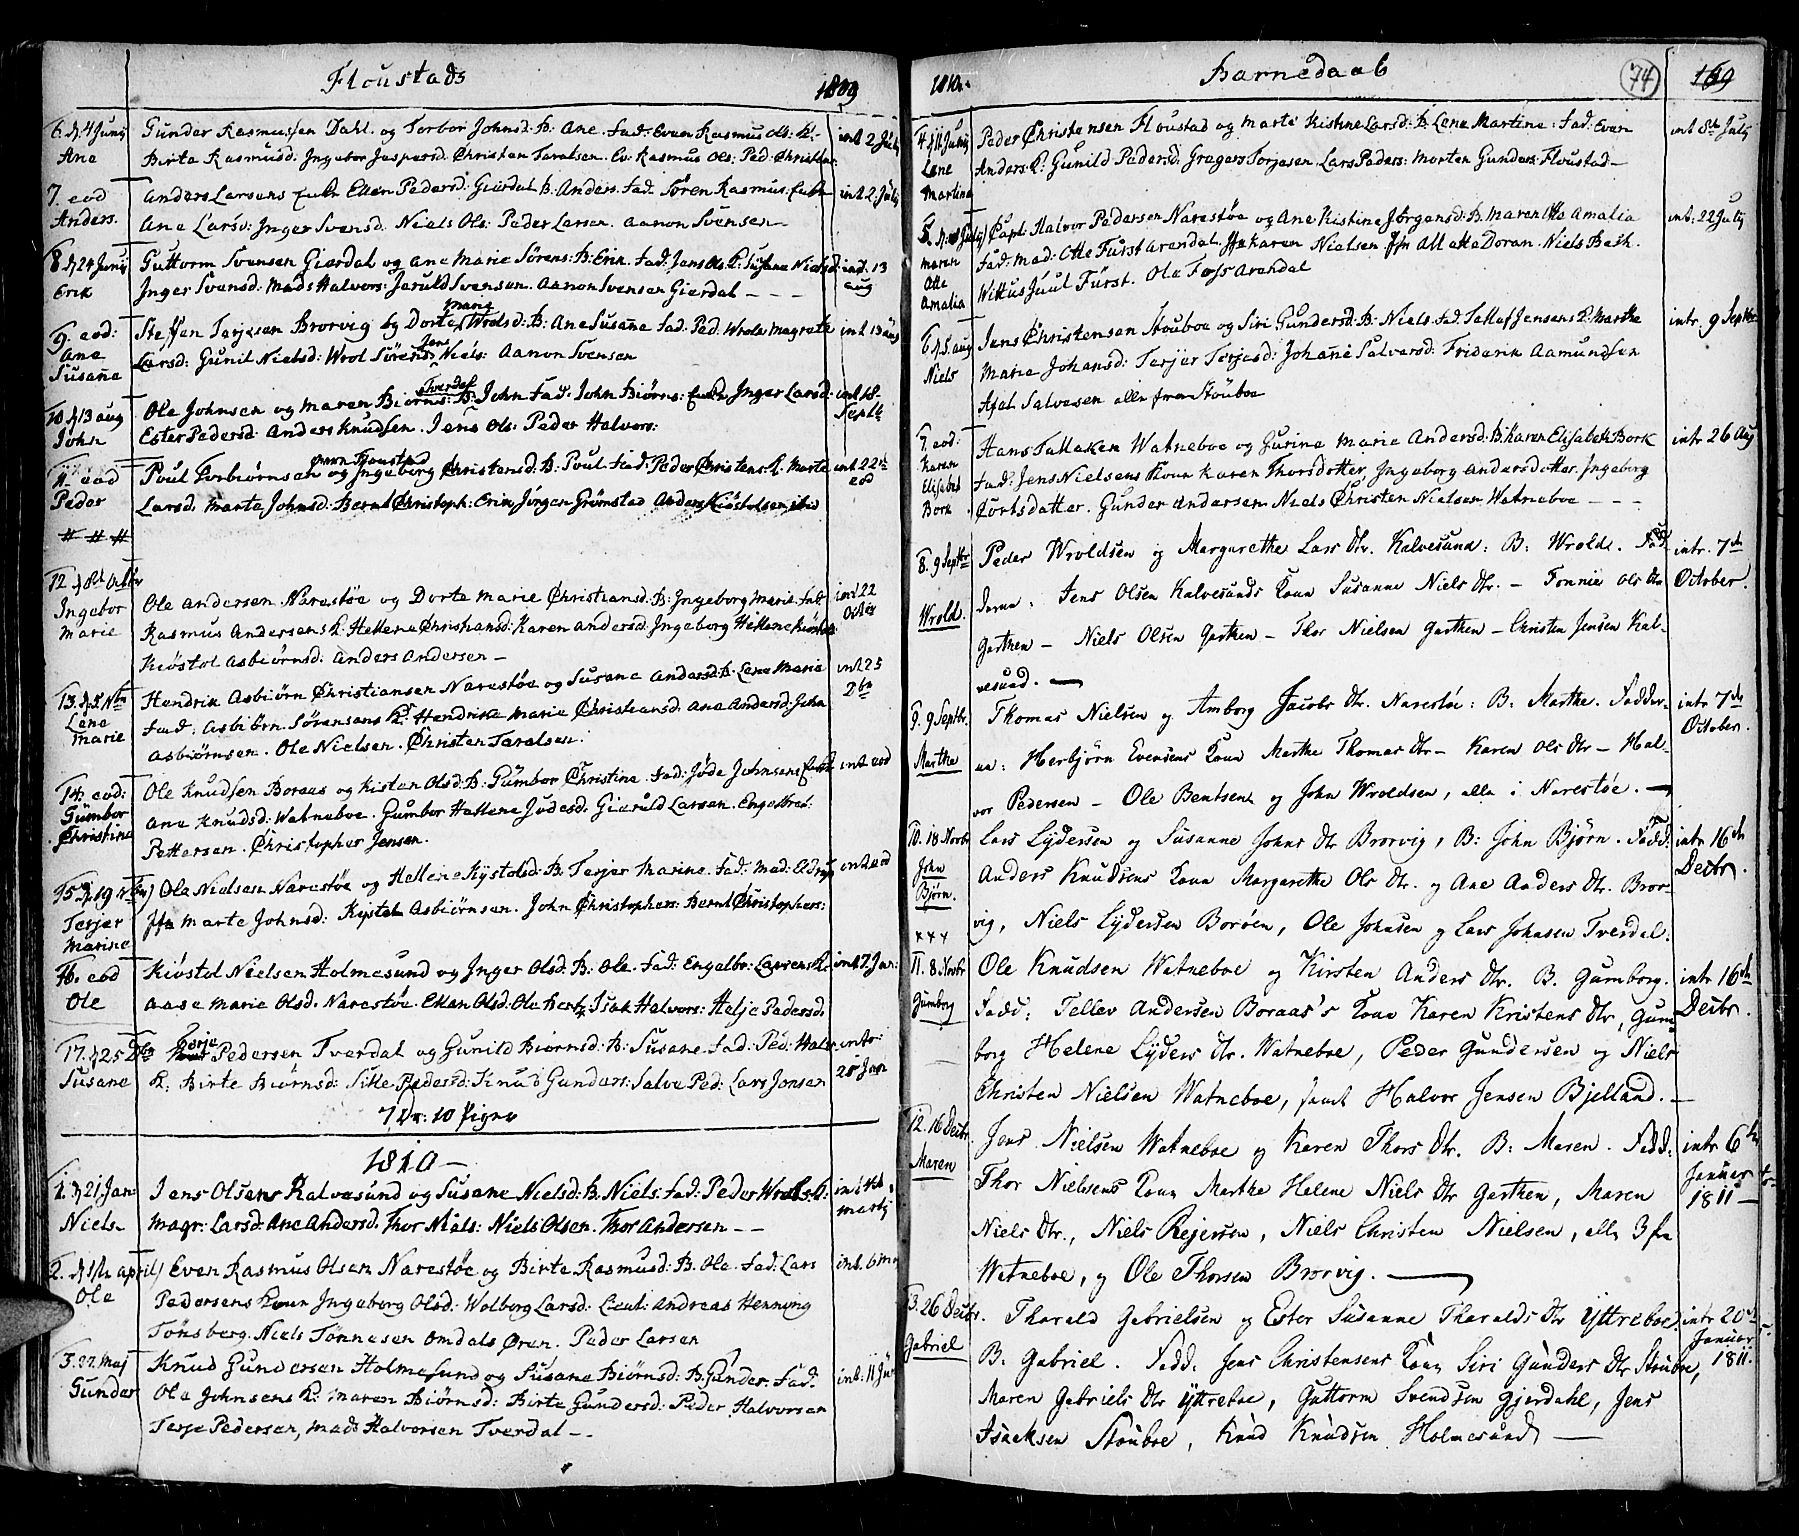 Floustads 1809
6. d. 4 Junij Gunder Rasmussen Dahl. og Torbor Johnsd: B: Ane. Fad: Even Rasmus Ols: K. int 2 July
Ane Birta Rasmusd: Ingebor Jespersd: Christen Taralsen. Ev. Rasmus Ols: Ped: Christen
7. eod Anders Larsens Enke Ellen Pedersd: Gierdal B: Anders. Fad: Søren Rasmus: Enke int 2 July
Anders. Ane Larsd: Inger Svensd. Niels Ols: Peder Larsen. Aanon Svensen
8. d. 24 Junij Guttorm Svensen Gierdal og Ane Marie Sörens: B: Erik. Fad: Jens Ols. K: Susane Nielsd: int. 13
Erik Inger Svensd: Mads Halvors: Jeruld Svensen. Aanon Svensen Gierdal aug
Marie
9. eod: Steffen Tarjesen Brorvig og Dorte Wrolsd: B: Ane Susane Fad: Ped. Wrols Magrete int 13 aug
Ane Larsd: Gunil Nielsd: Wrol Sörens: Jens Niels: Aanon Svensen
Susane
Tverdal
10. d. 13 aug Ole Johnsen og Maren Biörns: B: John Fad: John Biörns: Enke Inger Larsd. int 18.
John Ester Pedersd: Anders Knudsen. Jens Ols: Peder Halvors: Septb
11. eod Poul Torbiörnsen og Ingeborg Christensd: B: Poul Fad: Peder Christens K. Marte int 22
Peder Larsd. Marte Johnsd: Bernt Christoph: Erik Jörgen Grömstad Anders Kiöstolsen eod
12. d. 8d Octbr Ole Andersen Narestøe og Dorte Marie Christiansd: B: Ingeborg Marie. Fad: int 22
Ingebor Rasmus Andersens K: Hellene Christiansd: Karen Andersd: Ingeborg Hellene Kiöstolsd Octbr
Marie Kiöstol Asbiörnsd: Anders Andersen
13. d. 5 Nbr Hendrik Asbiörn Christiansen Narestøe og Susane Andersd: B. Lene Marie int 25
Lene Fad: Asbiörn Sörensens K: Hendrike Marie Christiansd: Ane Andersd: John
Marie Asbiörnsen. Ole Nielsen. Christen Taralsen.
14. eod: Ole Knudsen Boraas og Kisten Olsd: B: Gumbor Christine. Fad: Jöde Johnsens Enke int eod
Gumbor Ane Knudsd: Watneboe. Gumbor Hellene Judesd: Gieruld Larsen. Engelbret
Christine Pettersen. Christopher Jensen.
15. d. 19 Nbr Ole Nielsen Narestøe og Hellene Kystolsd: B: Terjer Marine. Fad: Mad. Eldrup int eod
Terjer Marte Johnsd: Kystol Asbiörnsen. John Christophers: Bernt Christophers:
Marine
16. eod Kiöstol Nielsen Holmesund og Inger Olsd: B: Ole. Fad: Engelbr: Laurens K. int 7 Jan:
Ole Aase Marie Olsd. Narestøe. Ellen Olsd: Ole Isak Halvors: Helje Pedersd.
Torje
17. d. 25 Pedersen Tverdal og Gunild Biörnsd: B: Susane. Fad: Ped: Halv. intr:
Susane K. Birte Biörnsd: Sille Pedersd: Knud Gunders: Salve Ped: Lars Jonsen 28 Jan
7 Dr: 10 Pigra
1810
1. d. 21 Jan Jens Olsens Kalvesund og Susane Nielsd: B. Niels: Fad: Peder Wrols K. int 4d
Niels Magr: Larsd: Ane Andersd. Thor Niels: Niels Olsen. Thor Andersen martij
2. d. 1ste april Even Rasmus Olsen Narestøe og Birte Rasmusd: B. Ole. Fad: Lars int. 6 maj
Ole Pedersens Koun Ingeborg Olsd: Wolborg Larsd: Lieut: Andreas Henning
Tönsberg. Niels Tönnesen Omdals Øren. Peder Larsen
3. 27. Maj Knud Gundersen Holmesund og Susane Biörnsd: B. Gunder. Fad. int: 11 Jun
Gunder Ole Johnsens K: Maren Biörnsd: Birte Gundersd: Peder Halvorsen
Terje Pedersen, Mads Halvorsen Tverdal
1810. Barnedaab 74 169
4. d. 11 Junij Peder Christensen Floustad og Marte Kistine Larsd: B. Lene Martine: Fad: Even int 8d July
Lene Anders. K: Gunild Pedersd: Gregers Torjesen Lars Peders: Morten Gunders: Floustad
Martina
5. July Capt: Halvor Pedersen Narestøe og Ane Kistine Jörgensd: B. Maren Otte Amalia int. 22 July
Maren Fad: Mad: Otte Fürst Arendal. Jfr Karen Nielsen Jfr Allette Doran. Niels Bech.
Otte Wittus Juul Fürst. Ole Foss Arendal
Amalia
6. d. 5. aug Jens Christensen Stouboe og Siri Gundersd: B: Niels Fad. Tallef Jensens K. Marthe intr. 9 Septbr
Niels Marie Johansd: Terjer Terjesd: Johane Salversd: Friderik Aamundsen
Axel Salvesen alle fra Stouboe
7. eod: Hans Tallaksen Watneboe og Gurine Marie Andersd: B. Karen Elisabeth Bork intr. 26 Aug
Karen Fad: Jens Nielsens Koun Karen Thorsdatter, Ingeborg Andersdotter. Ingeborg
Elisabet Cortsdatter. Gunder Andersen Niels Christen Nielsen Watneboe
Bork
8. 9 Septbr Peder Wroldsen og Margarethe Lars Dtr. Kalvesund: B: Wrold. Fad intr. 7de
Wrold. derne: Jens Olsen Kalvesunds Kone Susanne Niels Dtr. – Tonnie Ols Dtr October.
Garthen – Niels Olsen Garthen – Thor Nielsen Garthen – Christen Jensen Kal-
vesund. —
9. 9 Septbr. Thomas Nielsen og Amborg Jacobs Dtr. Narestøe: B: Marthe. Fadder- intr. 7de
Marthe ne: Herbjørn Evensens Kone Marthe Thomas Dtr – Karen Ols Dtr – Hal- October.
vor Pedersen – Ole Bentsen og John Wroldsen, alle i Narestøe. —
10. 18 Novbr Lars Lydersen og Susanne Johns Dtr Brorvig, B: John Bjørn. Fadd: intr 16de
John Anders Knudsens Kone Margarethe Ols Dtr. og Ane Anders Dtr. Bror- Decbr.
Bjørn. vig, Niels Lydersen Borøen, Ole Johnsen og Lars Johnsen Tverdal.
×××
11. 8. Novbr Ole Knudsen Watneboe og Kirsten Anders Dtr. B. Gumborg. intr 16de
Gumborg Fadd: Tellev Andersen Boraas's Kone Karen Kristens Dtr, Gum Decbr.
borg Helene Lyders Dtr. Watneboe, Peder Gundersen og Niels
Christen Nielsen Watneboe, samt Halvor Jensen Bjelland. —
12. 16 Decbr. Jens Nielsen Watneboe og Karen Thors Dtr. B: Maren. Fadd: intr 6te
Maren Thor Nielsens Kone Marthe Helene Niels Dtr Garthen, Maren Januar
Niels Dtr., Niels Rejersen, Niels Christen Nielsen, alle 3 fra 1811 —
Watneboe, og Ole Thorsen Brorvig. —
13. 26 Decbr. Tharald Gabrielsen og Ester Susanne Tharalds Dtr Yttreboe. intr 20de
Gabriel B. Gabriel. Fadd. Jens Christensens Kone Siri Gunders Dtr Stouboe, Januar
Maren Gabriels Dtr Yttreboe, Guttorm Svendsen Gjerdahl, Jens 1811.
Isacksen Stouboe, Knud Knudsen Holmesund —